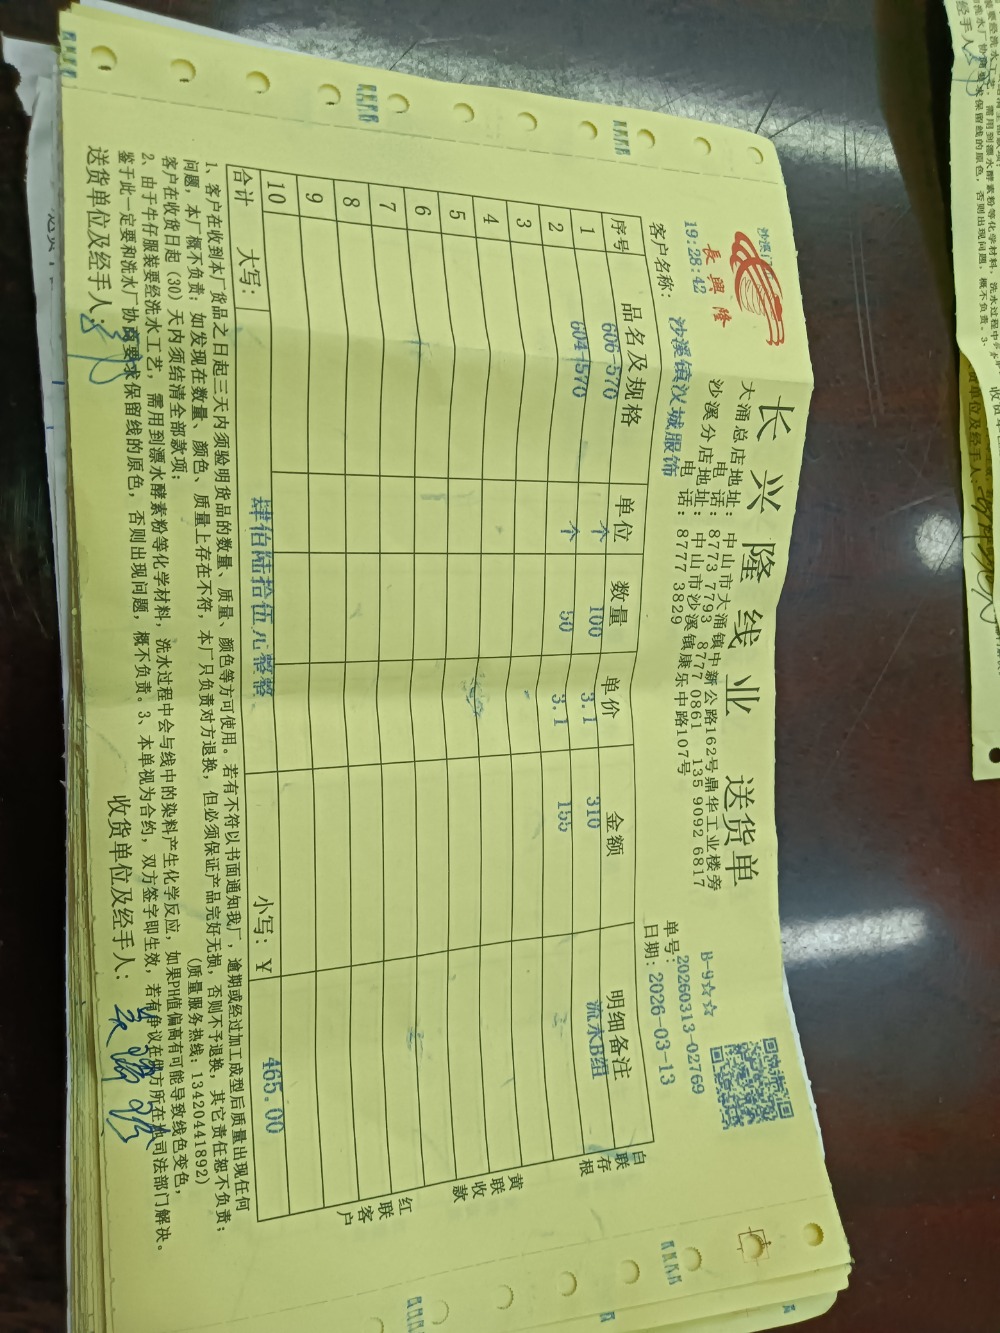 长兴隆线业 送货单
沙溪门
長興隆
大涌总店地址：中山市大涌镇中新公路162号鼎华工业楼旁
电话：8773 7793 8777 0861 135 9092 6817
沙溪分店地址：中山市沙溪镇康乐中路107号
电话：8777 3829
B-9☆☆
19:28:42
单号：20260313-02769
客户名称：沙溪镇汉城服饰
日期：2026-03-13
序号 品名及规格 单位 数量 单价 金额 明细备注
1 606-570 个 100 3.1 310 流水B组
2 604-570 个 50 3.1 155
3
4
5
6
7
8
9
10
合计 大写：肆佰陆拾伍元整整 小写：￥ 465.00
白联存根
黄联收款
红联客户
1、客户在收到本厂货品之日起三天内须验明货品的数量、质量、颜色等方可使用。若有不符以书面通知我厂，逾期或经过加工成型后质量出现任何
问题，本厂概不负责；如发现在数量、颜色、质量上存在不符，本厂只负责对方退换，但必须保证产品完好无损，否则不予退换，其它责任恕不负责；
客户在收货日起（30）天内须结清全部款项； （质量服务热线：13420441892）
2、由于牛仔服装要经洗水工艺，需用到漂水酵素粉等化学材料，洗水过程中会与线中的染料产生化学反应，如果PH值偏高有可能导致线色变色，
鉴于此一定要和洗水厂协商要求保留线的原色，否则出现问题，概不负责。3、本单视为合约，双方签字即生效，若有争议在供方所在地司法部门解决。
送货单位及经手人： 收货单位及经手人：